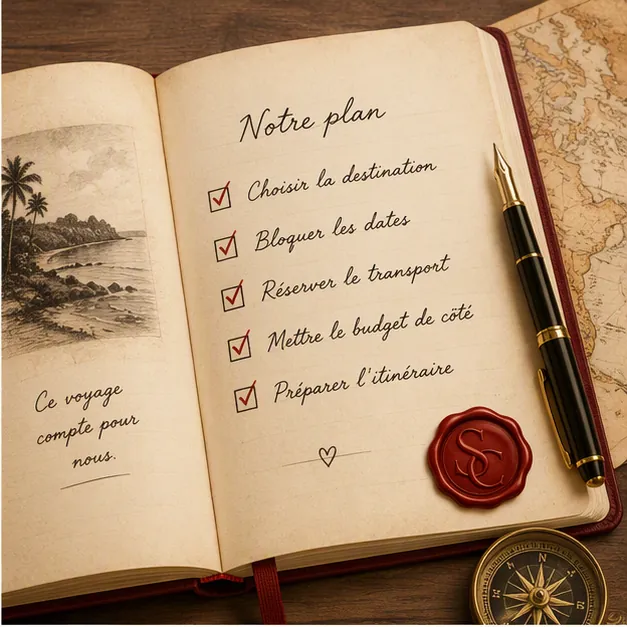 Ce voyage
compte pour
nous.
Notre plan
Choisir la destination
Bloquer les dates
Réserver le transport
Mettre le budget de côté
Préparer l'itinéraire
SC
N